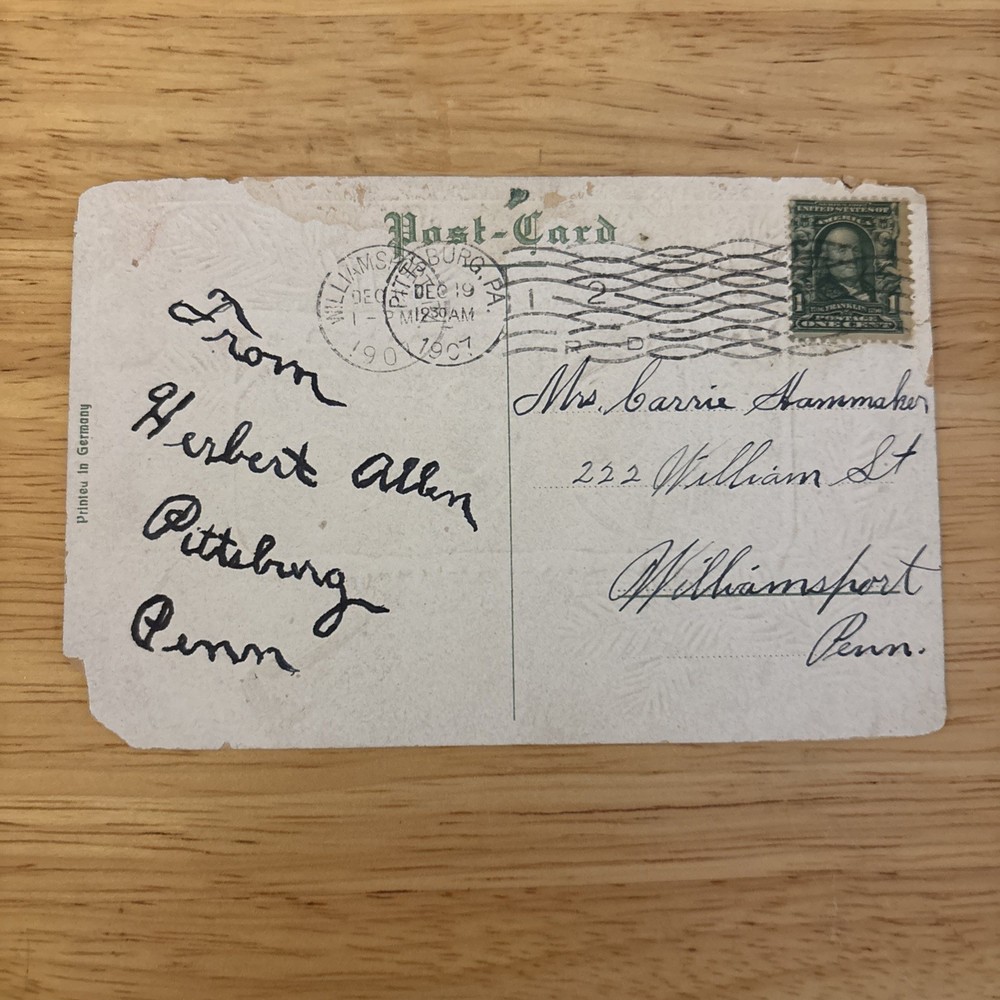 Post-Card
UNITED STATES OF
AMERICA
FRANKLIN
POSTAGE
ONE CENT
WILLIAMSPORT
DEC
1907
PITTSBURG, PA.
DEC 19
12 30 AM
1907
1 2
R D
From
Herbert Allen
Pittsburg
Penn
Mrs. Carrie Hammaker
222 William St
Williamsport
Penn.
Printed in Germany